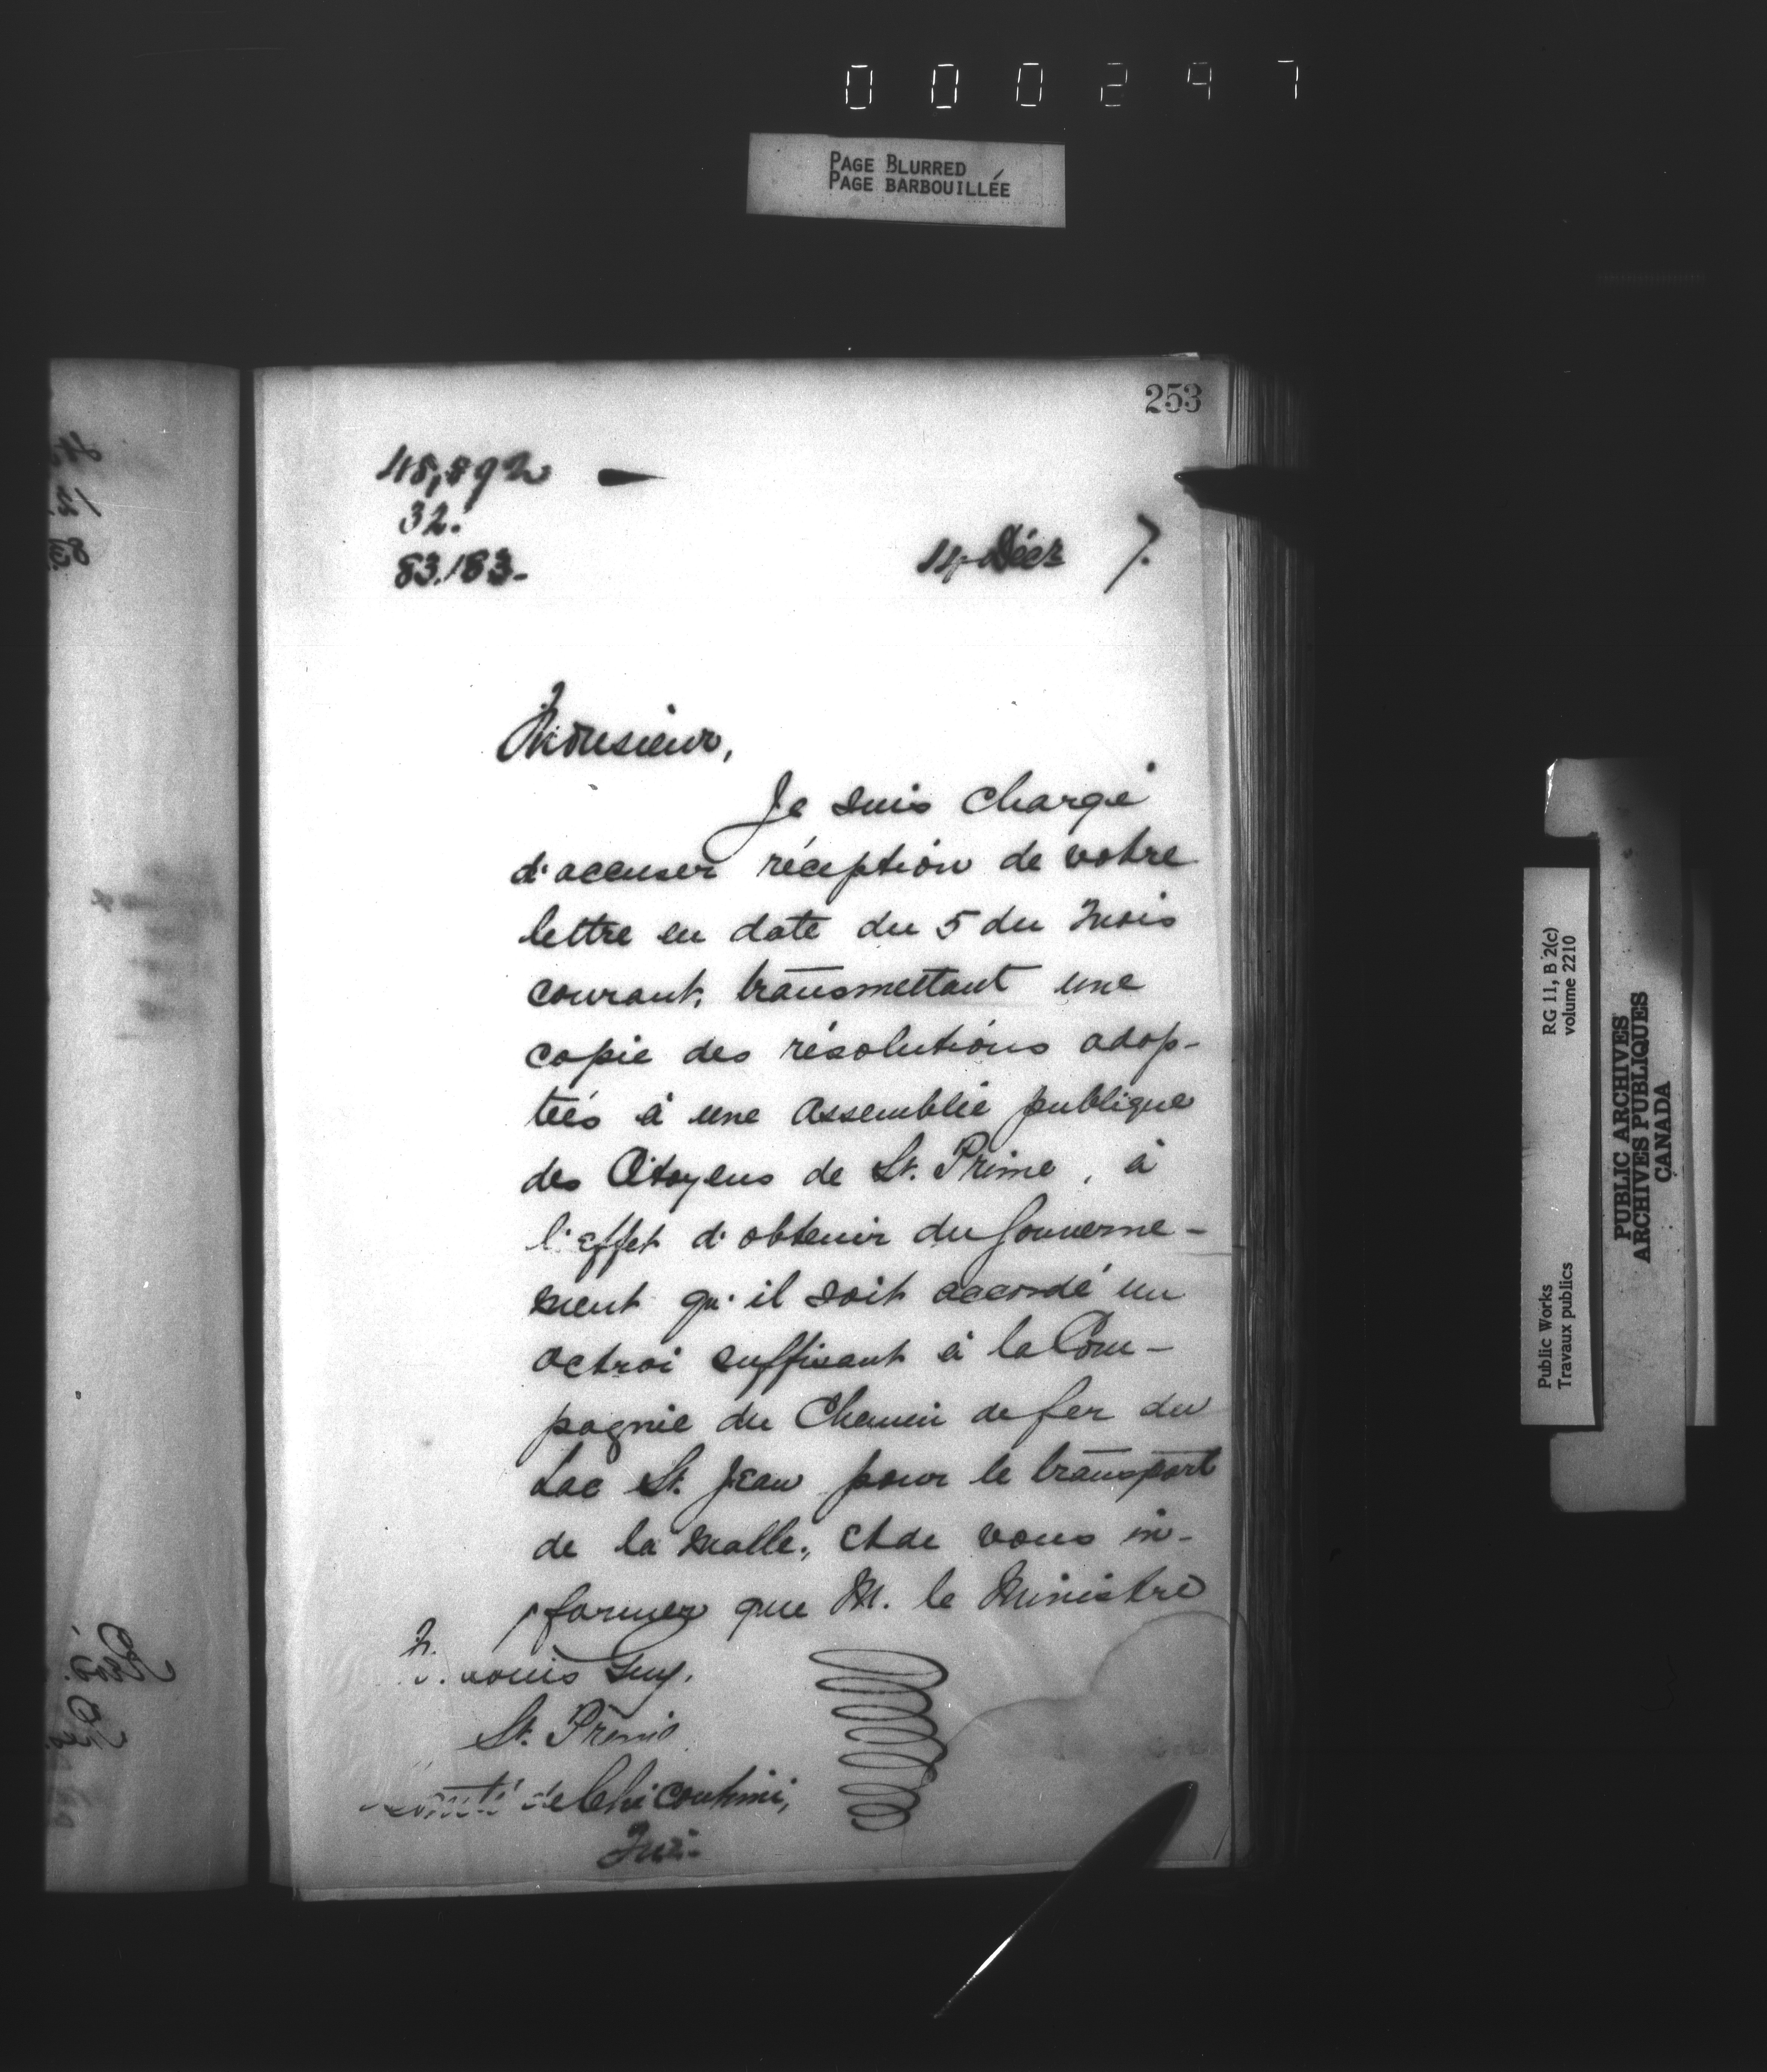 000297
PAGE BLURRED
PAGE BARBOUILLÉE
253
45,892
32.
83.183-
14 Décr 7.
Monsieur,
Je suis chargé
d'accuser réception de votre
lettre en date du 5 du mois
courant, transmettant une
copie des résolutions adop-
tées à une assemblée publique
des Citoyens de St. Prime, à
l'effet d'obtenir du Gouverne-
ment qu'il soit accordé un
octroi suffisant à la Com-
pagnie du Chemin de fer du
Lac St. Jean pour le transport
de la malle, et de vous in-
former que M. le Ministre
Louis Guy,
St. Prime
Comté de Chicoutimi,
RG 11, B 2(c)
volume 2210
Public Works
Travaux publics
PUBLIC ARCHIVES
ARCHIVES PUBLIQUES
CANADA